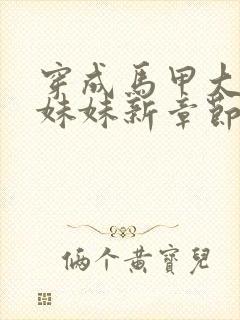 穿成馬甲大
妹妹新章節
倆个黃寶兒